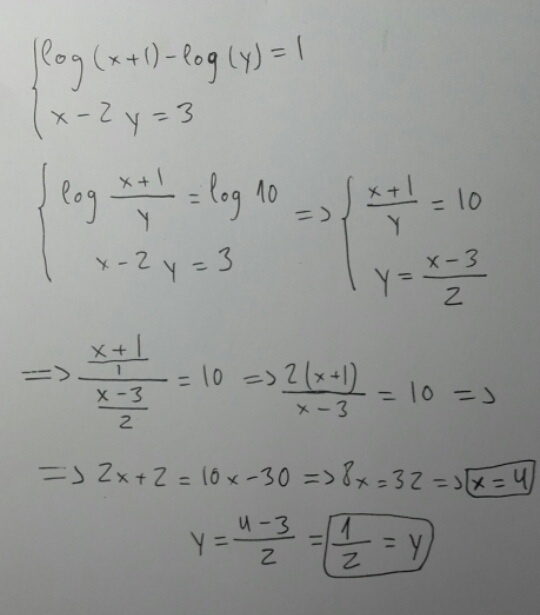 { log(x+1)-log(y)=1
x-2y=3
{ log x+1/y = log 10 => { x+1/y = 10
x-2y=3 y = x-3/2
=> x+1/1 / x-3/2 = 10 => 2(x+1)/x-3 = 10 =>
=> 2x+2 = 10x-30 => 8x=32 => x=4
y = 4-3/2 = 1/2 = y